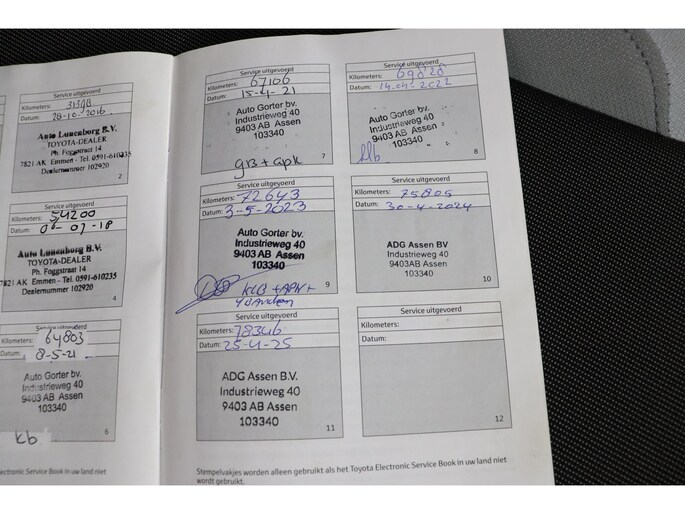 Service uitgevoerd
Kilometers: 31398
Datum: 28-10-2016
Auto Lunenborg B.V.
TOYOTA-DEALER
Ph. Foggstraat 14
7821 AK Emmen - Tel. 0591-610235
Dealernummer 102920
2
Service uitgevoerd
Kilometers: 54200
Datum: 06-07-18
Auto Lunenborg B.V.
TOYOTA-DEALER
Ph. Foggstraat 14
7821 AK Emmen - Tel. 0591-610235
Dealernummer 102920
4
Service uitgevoerd
Kilometers: 64803
Datum: 8-5-21
Auto Gorter bv.
Industrieweg 40
9403 AB Assen
103340
kb
6
Electronic Service Book in uw land niet
Service uitgevoerd
Kilometers: 67106
Datum: 15-4-21
Auto Gorter bv.
Industrieweg 40
9403 AB Assen
103340
7
gB + apk
Service uitgevoerd
Kilometers: 69828
Datum: 14-04-2022
Auto Gorter bv.
Industrieweg 40
9403 AB Assen
103340
8
klb
Service uitgevoerd
Kilometers: 72643
Datum: 3-5-2023
Auto Gorter bv.
Industrieweg 40
9403 AB Assen
103340
9
KLB + APK +
Service uitgevoerd
Kilometers: 75805
Datum: 30-4-2024
ADG Assen BV
Industrieweg 40
9403AB Assen
10
Service uitgevoerd
Kilometers: 78346
Datum: 25-4-25
ADG Assen B.V.
Industrieweg 40
9403 AB Assen
103340
11
Service uitgevoerd
Kilometers:
Datum:
12
Stempelvakjes worden alleen gebruikt als het Toyota Electronic Service Book in uw land niet
wordt gebruikt.